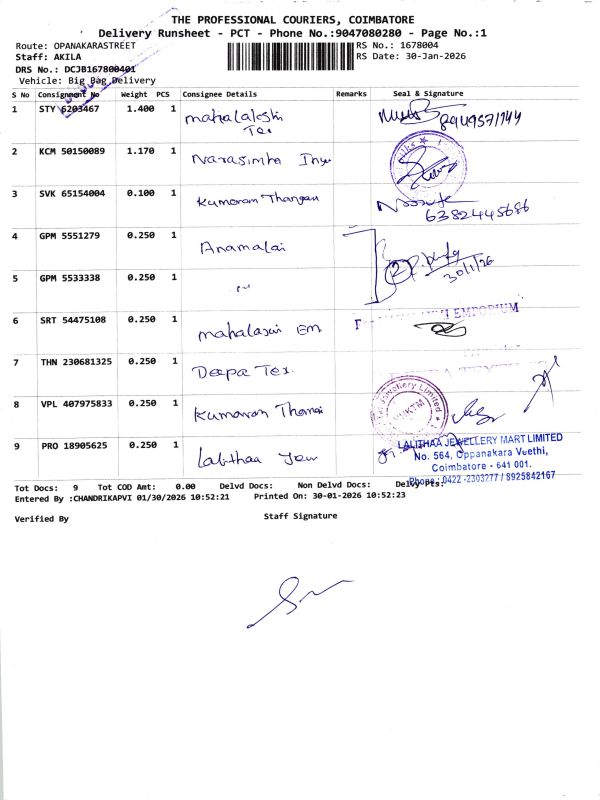 THE PROFESSIONAL COURIERS, COIMBATORE
Delivery Runsheet - PCT - Phone No.:9047080280 - Page No.:1
Route: OPANAKARASTREET
RS No.: 1678004
Staff: AKILA
RS Date: 30-Jan-2026
DRS No.: DCJB167800401
Vehicle: Big Bag Delivery
S No Consignment No Weight PCS Consignee Details Remarks Seal & Signature
1 STY 6203467 1.400 1 mahalakshi Tex
8949571744
2 KCM 50150089 1.170 1 Narasimha
3 SVK 65154004 0.100 1 Kumaran Thangam
6382445686
4 GPM 5551279 0.250 1 Anamalai
30/1/26
5 GPM 5533338 0.250 1 "
6 SRT 54475108 0.250 1 mahalaxmi Em
EMPORIUM
7 THN 230681325 0.250 1 Deepa Tex.
8 VPL 407975833 0.250 1 Kumaran
Jewellery Limited
9 PRO 18905625 0.250 1 Lalithaa Jew
LALITHAA JEWELLERY MART LIMITED
No. 564, Oppanakara Veethi,
Coimbatore - 641 001.
Phone: 0422 -2303277 / 8925842167
Tot Docs: 9 Tot COD Amt: 0.00 Delvd Docs: Non Delvd Docs: Delvd Pts:
Entered By :CHANDRIKAPVI 01/30/2026 10:52:21 Printed On: 30-01-2026 10:52:23
Verified By
Staff Signature